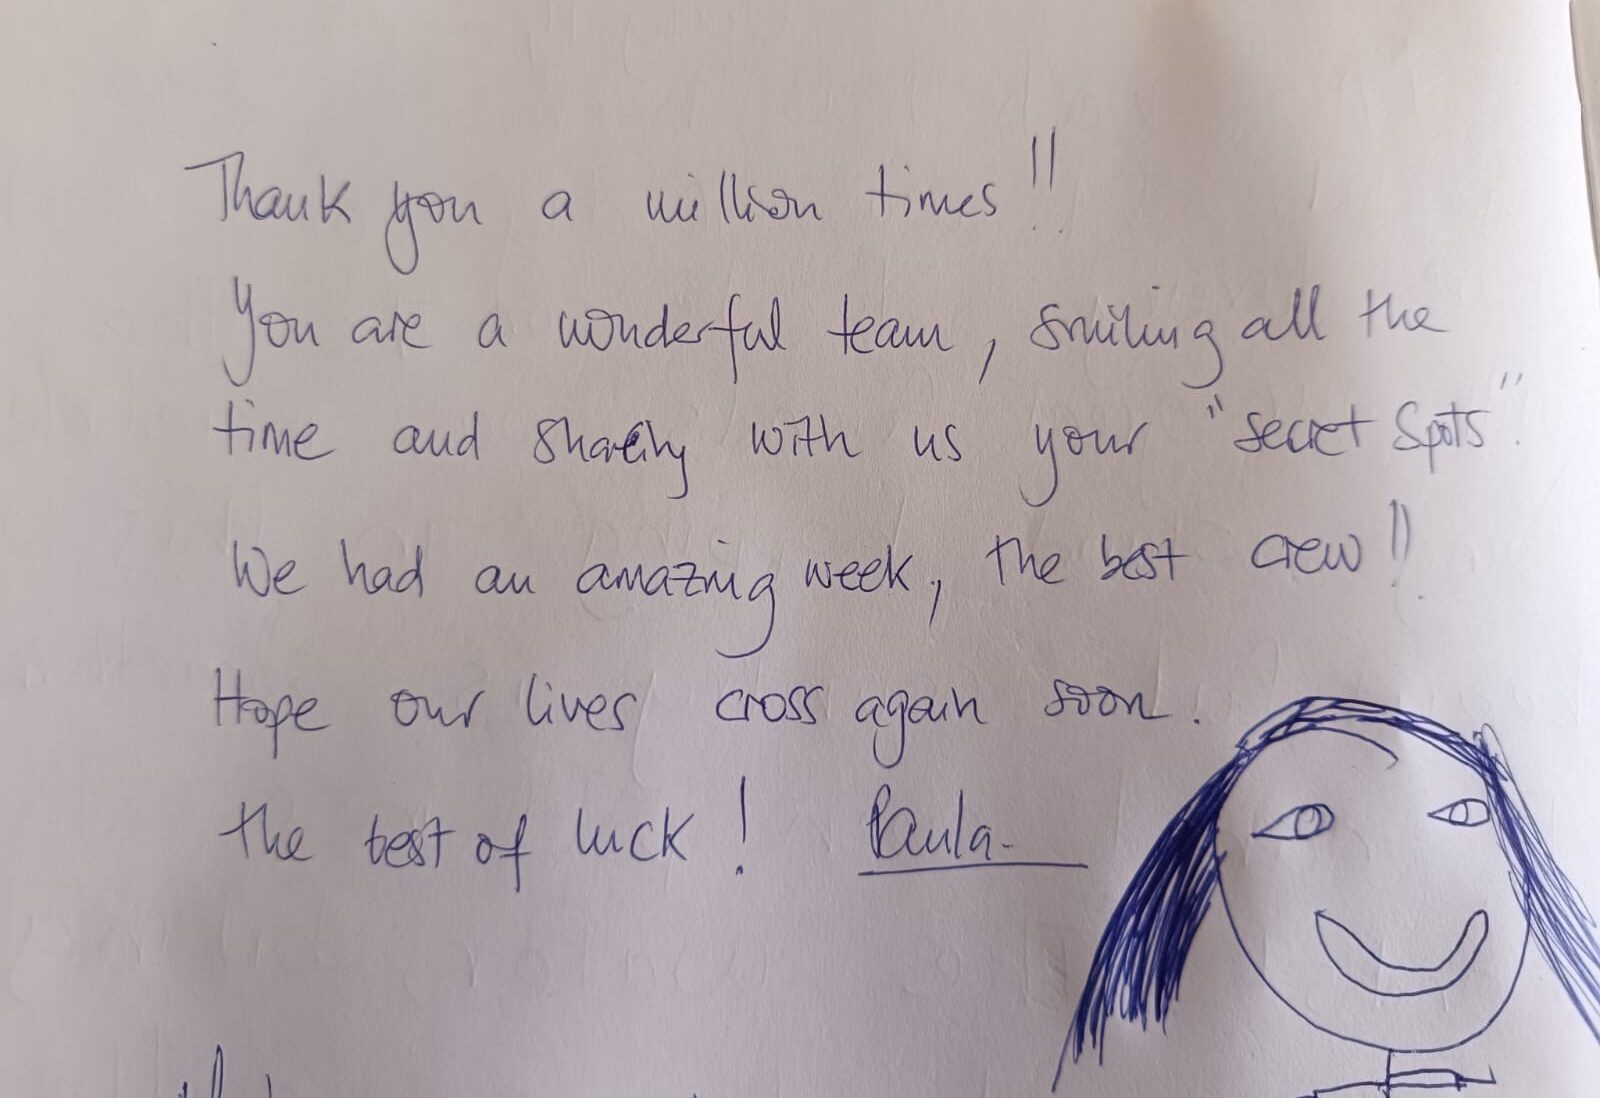 Thank you a million times!!
You are a wonderful team, smiling all the
time and sharing with us your "secret spots".
We had an amazing week, the best crew!!
Hope our lives cross again soon.
the best of luck! Paula.